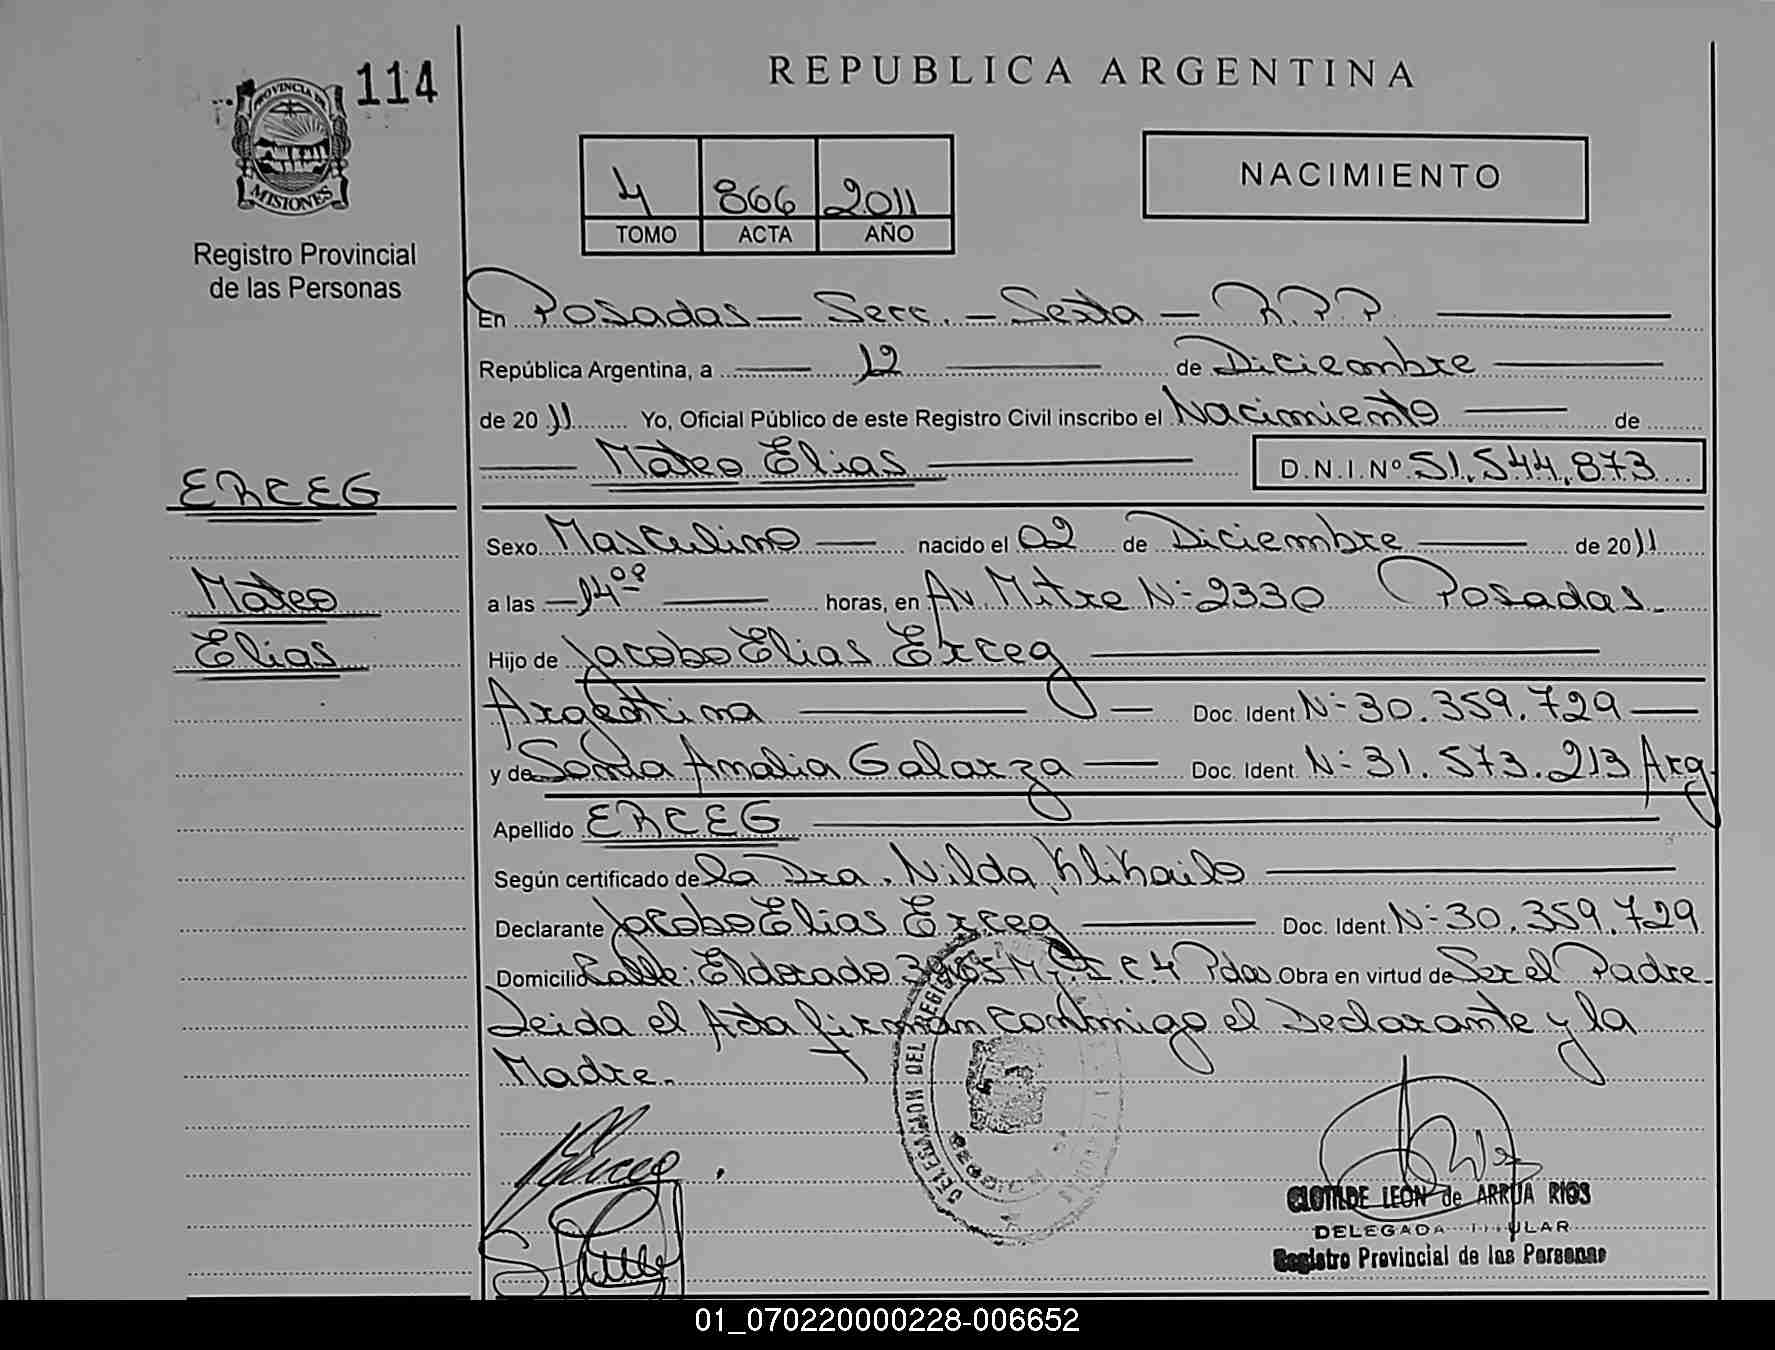 114
PROVINCIA DE
MISIONES
Registro Provincial
de las Personas
REPUBLICA ARGENTINA
4 866 2011
TOMO ACTA AÑO
NACIMIENTO
En Posadas — Secc. — Sexta — R.P.P.
República Argentina, a 12 de Diciembre
de 2011 Yo, Oficial Público de este Registro Civil inscribo el Nacimiento de
Mateo Elias D.N.I.Nº 51.544.873
ERCEG
Mateo
Elias
Sexo Masculino nacido el 02 de Diciembre de 2011
a las 14 horas, en Av. Mitre Nº 2330 Posadas
Hijo de Jacobo Elias Erceg
Argentina Doc. Ident Nº 30.359.729
y de Sonia Amalia Galarza Doc. Ident. Nº 31.573.213 Arg.
Apellido ERCEG
Según certificado de la Dra. Nilda Klikailo
Declarante Jacobo Elias Erceg Doc. Ident. Nº 30.359.729
Domicilio Calle: Eldorado 3965 Pdas. Obra en virtud de Ser el Padre
Leida el Acta firman conmigo el Declarante y la
Madre.
DELEGACION DEL REGISTRO
Erceg
CLOTILDE LEON de ARRUA RIOS
DELEGADA TITULAR
Registro Provincial de las Personas
01_070220000228-006652